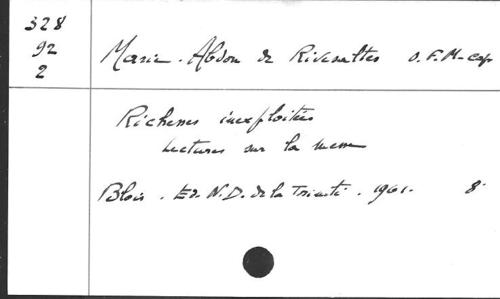 328
92
2
Marie-Abdon de Rivesaltes O.F.M-cap
Richesses inexploitées
Lectures sur la messe
Blois. Ed. N.D. de la Trinité. 1961. 8°